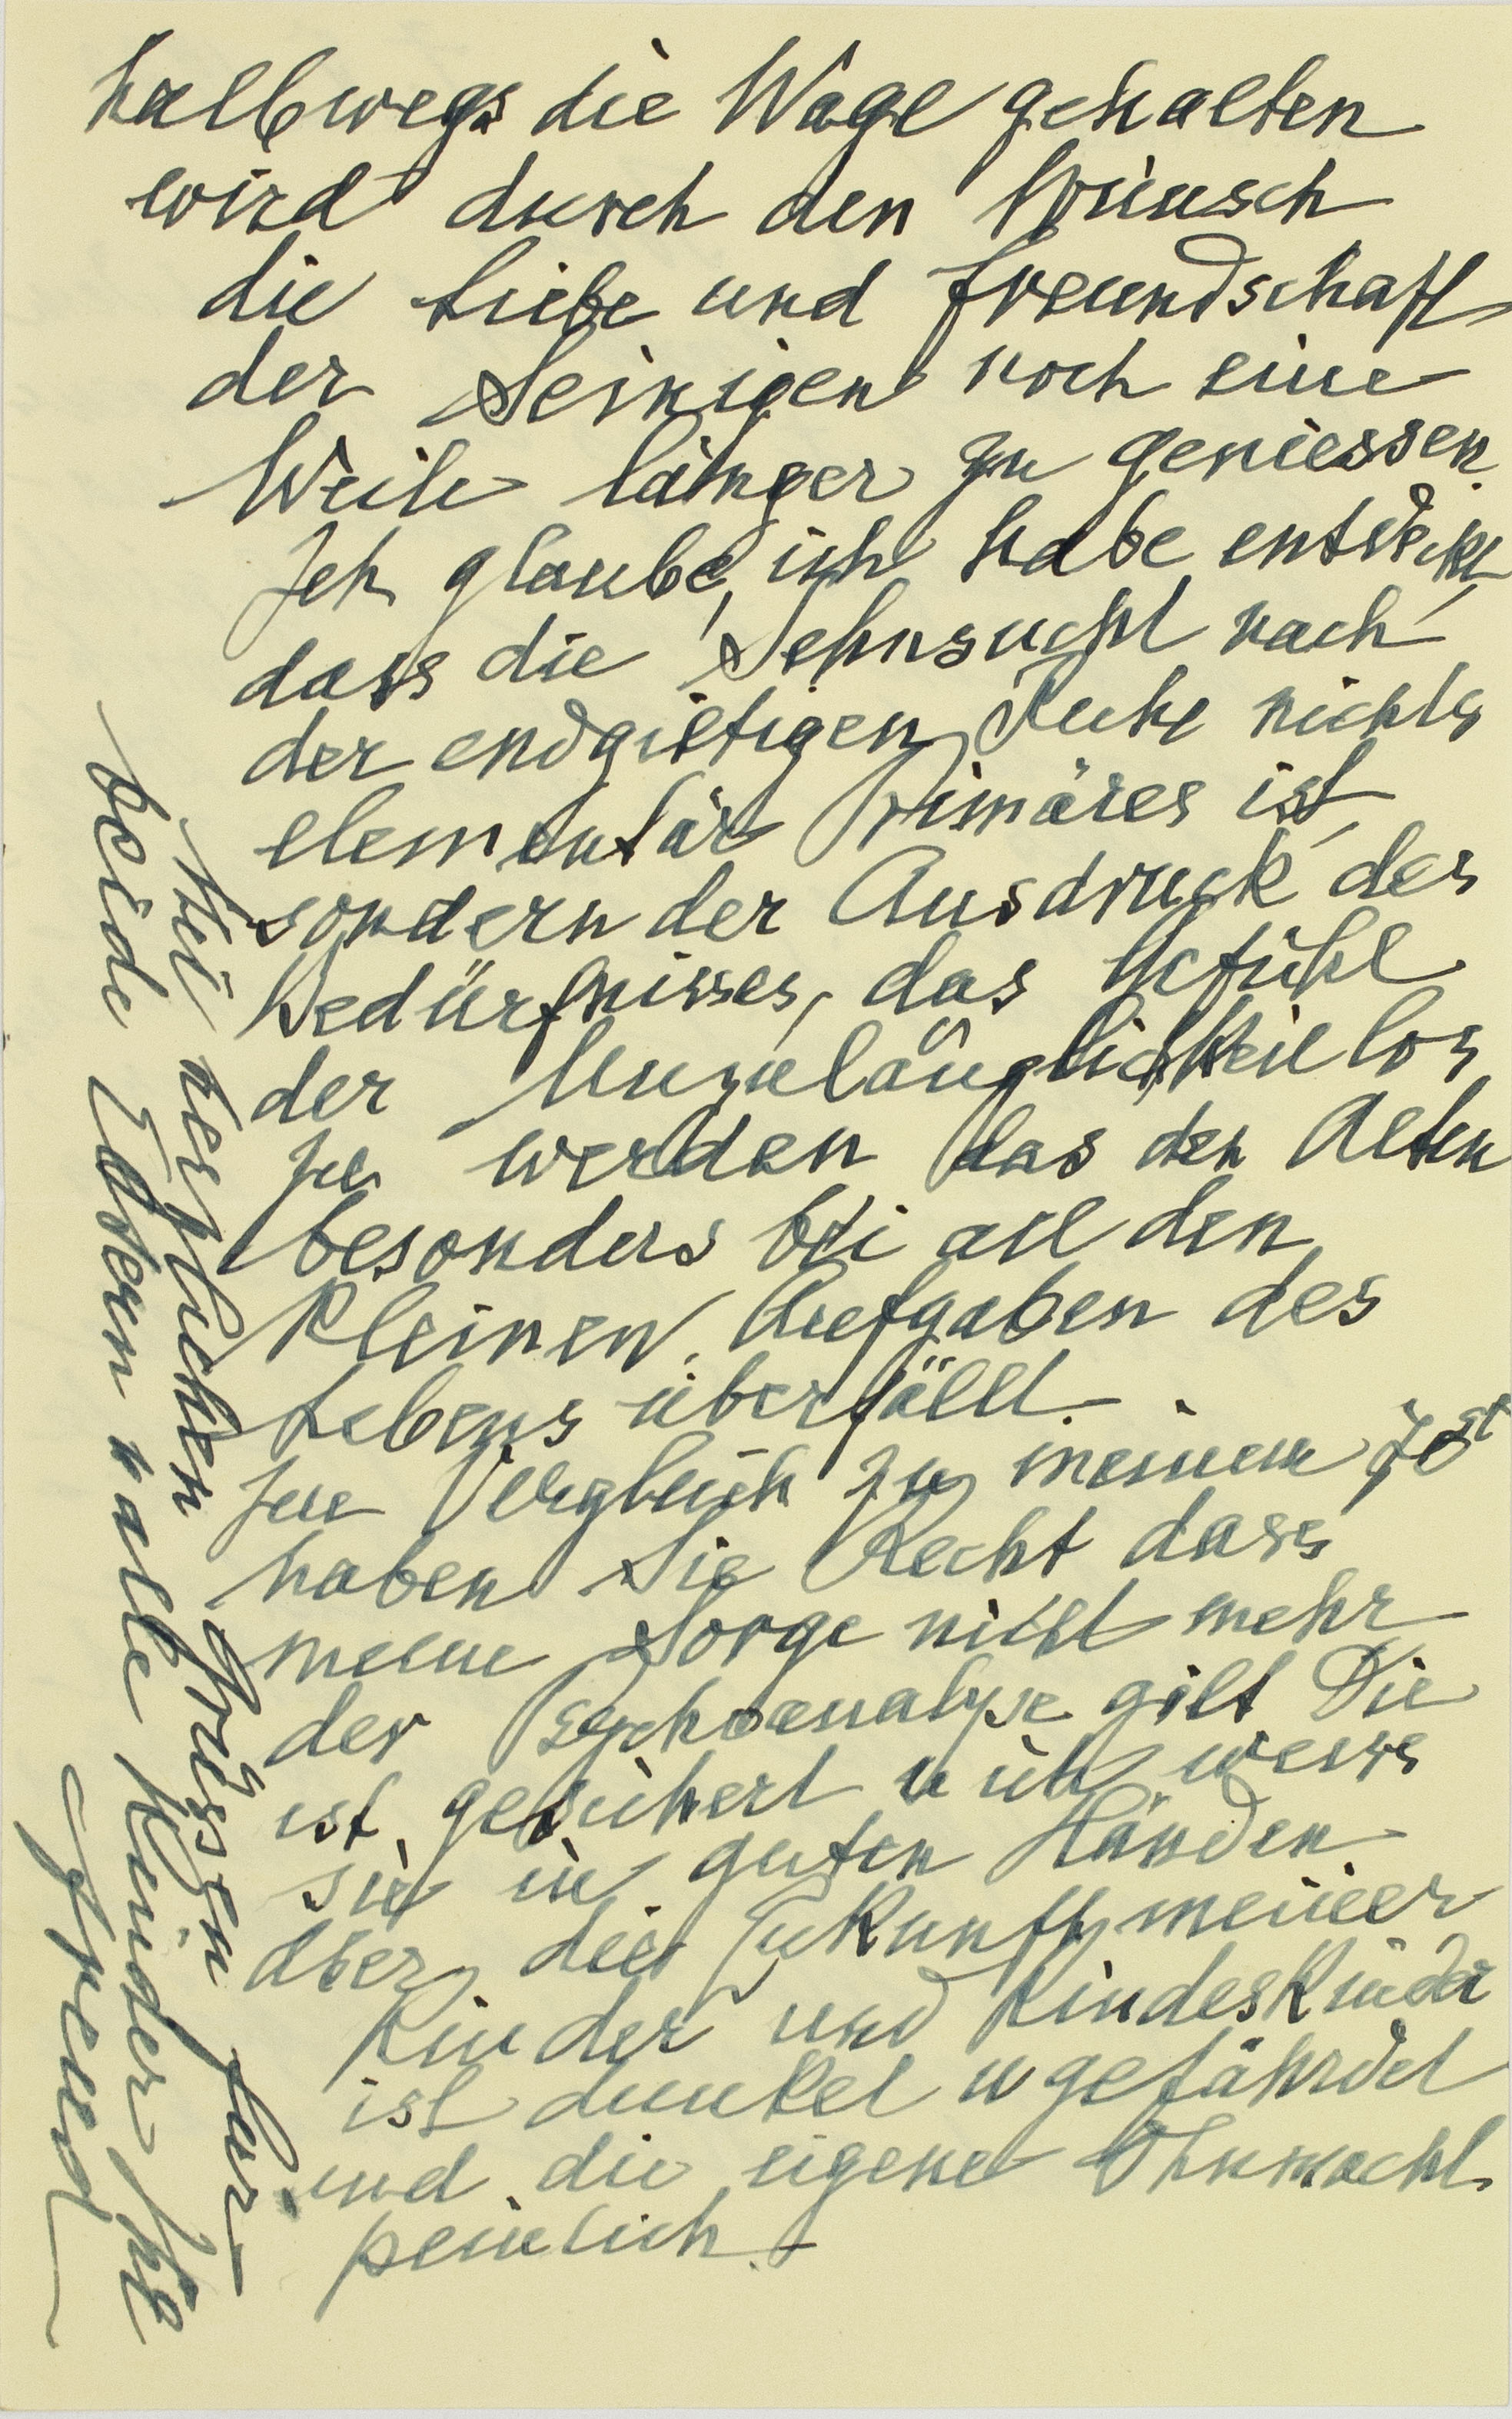 halbwegs die Wage gehalten
wird durch den Wunsch
die Liebe und Freundschaft
der Seinigen noch eine
Weile länger zu geniessen.
Ich glaube, ich habe entdeckt,
dass die Sehnsucht nach
der endgiltigen Ruhe nichts
elementär Primäres ist,
sondern der Ausdruck des
Bedürfnisses, das Gefühl
der Unzulänglichkeit los
zu werden das den Alten
besonders bei all den
kleinen Aufgaben des
Lebens überfällt.-
Im Vergleich zu meinem 70st
haben Sie Recht dass
meine Sorge nicht mehr
der Psychoanalyse gilt Die
ist gesichert u ich weiss
sie in guten Händen
Aber die Zukunft meiner
Kinder und Kindeskinder
ist dunkel u gefährdet
und die eigene Ohnmacht
peinlich.-
Mit herzlichen Grüssen für
beide Eltern u alle Kinder Ihr
Freud